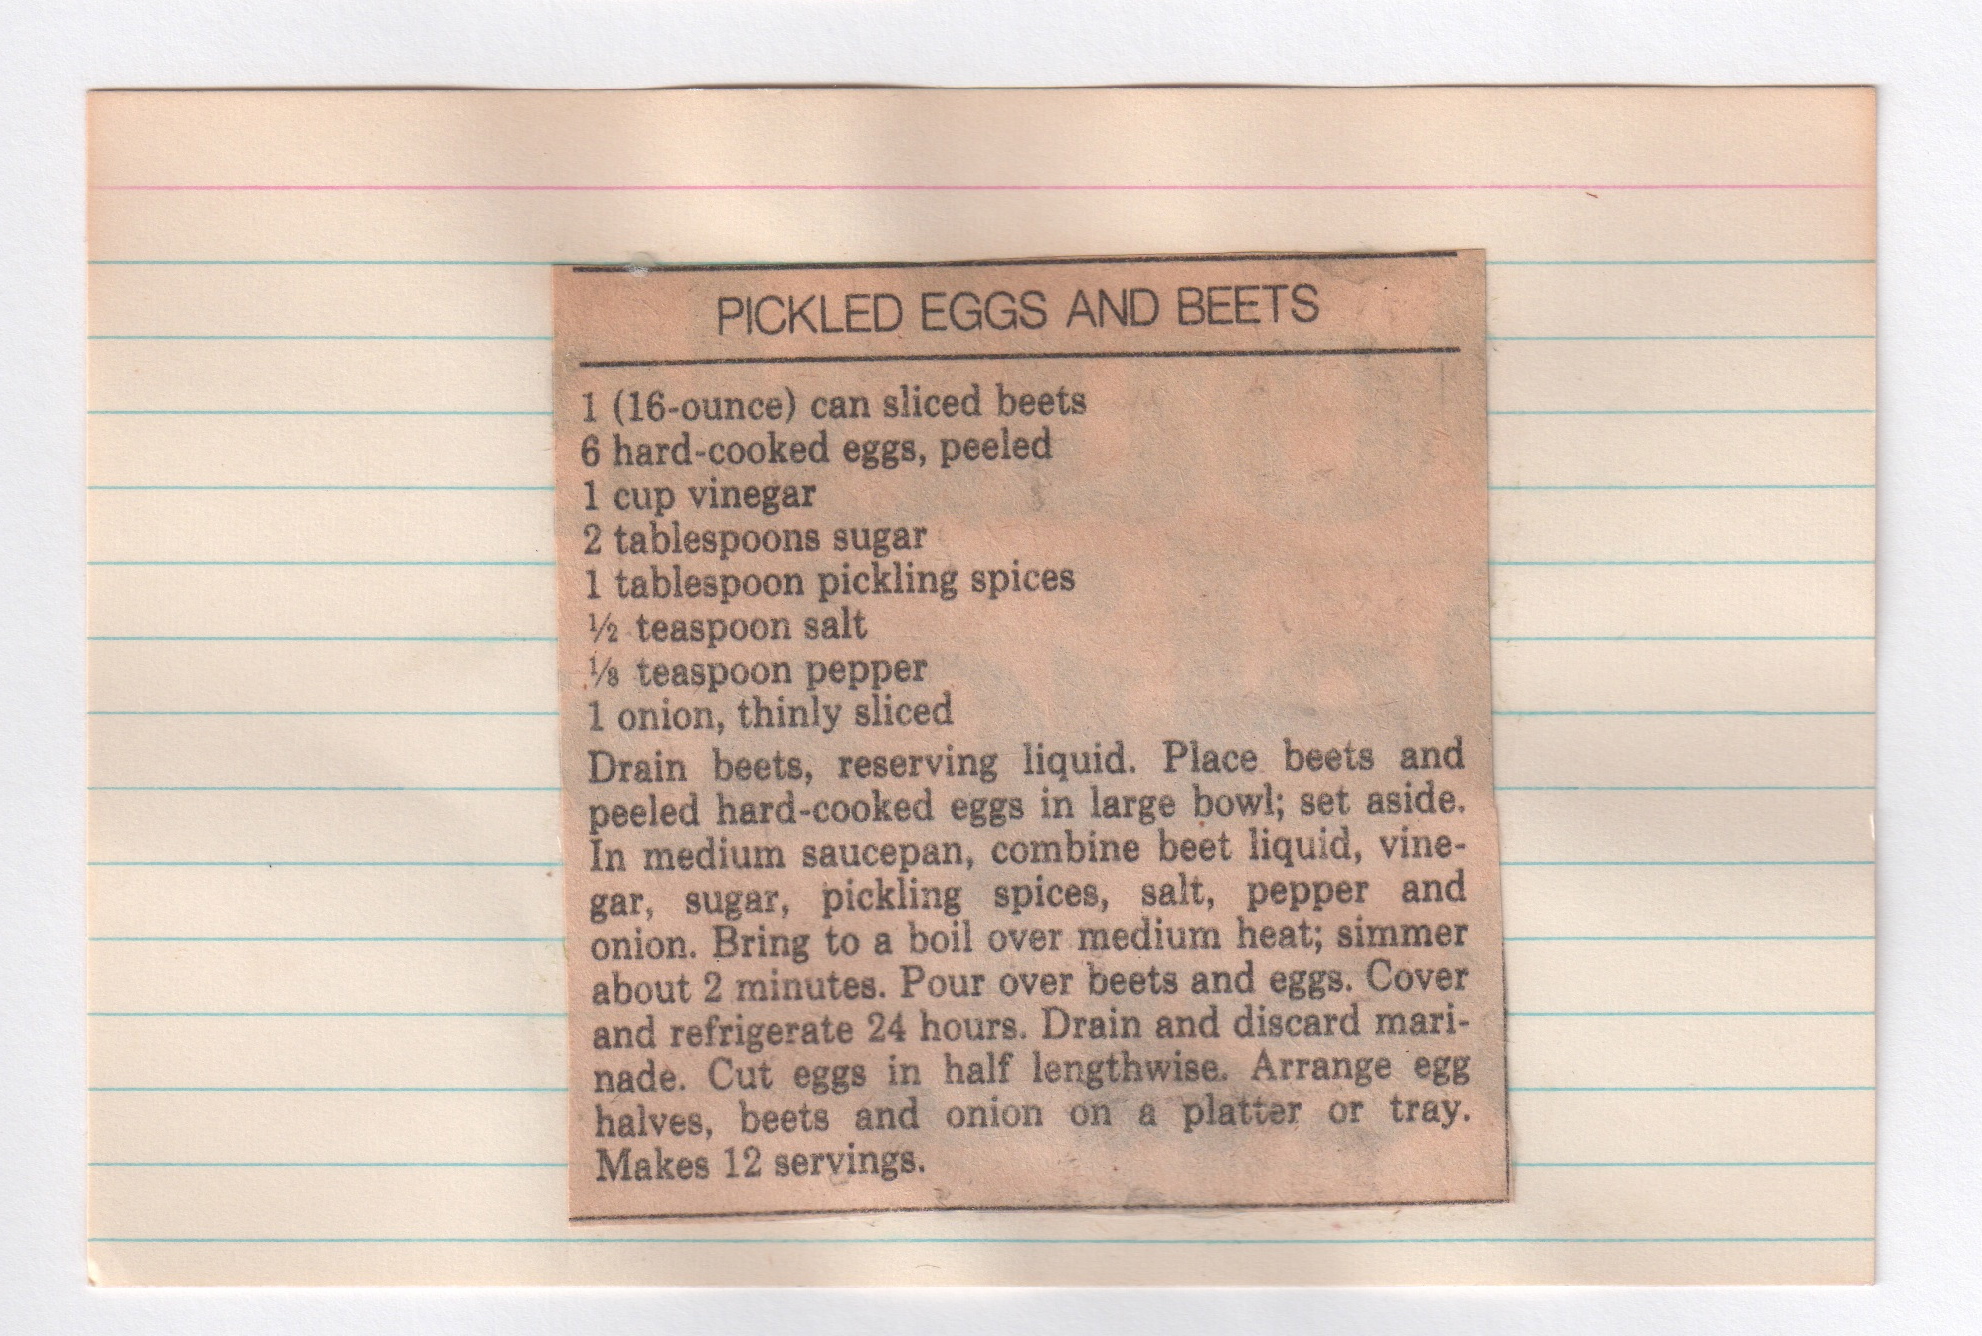 PICKLED EGGS AND BEETS
1 (16-ounce) can sliced beets
6 hard-cooked eggs, peeled
1 cup vinegar
2 tablespoons sugar
1 tablespoon pickling spices
½ teaspoon salt
⅛ teaspoon pepper
1 onion, thinly sliced
Drain beets, reserving liquid. Place beets and
peeled hard-cooked eggs in large bowl; set aside.
In medium saucepan, combine beet liquid, vine-
gar, sugar, pickling spices, salt, pepper and
onion. Bring to a boil over medium heat; simmer
about 2 minutes. Pour over beets and eggs. Cover
and refrigerate 24 hours. Drain and discard mari-
nade. Cut eggs in half lengthwise. Arrange egg
halves, beets and onion on a platter or tray.
Makes 12 servings.